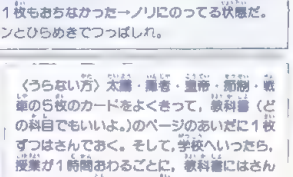 1枚もおちなかった→ノリにのってる状態だ。
ンとひらめきでつっぱしれ。
〈うらない方〉太陽・隠者・皇帝・節制・戦
車の5枚のカードをよくきって、教科書（ど
の科目でもいいよ。）のページのあいだに1枚
ずつはさんでおく。そして、学校へいったら、
授業が1時間おわるごとに、教科書にはさん